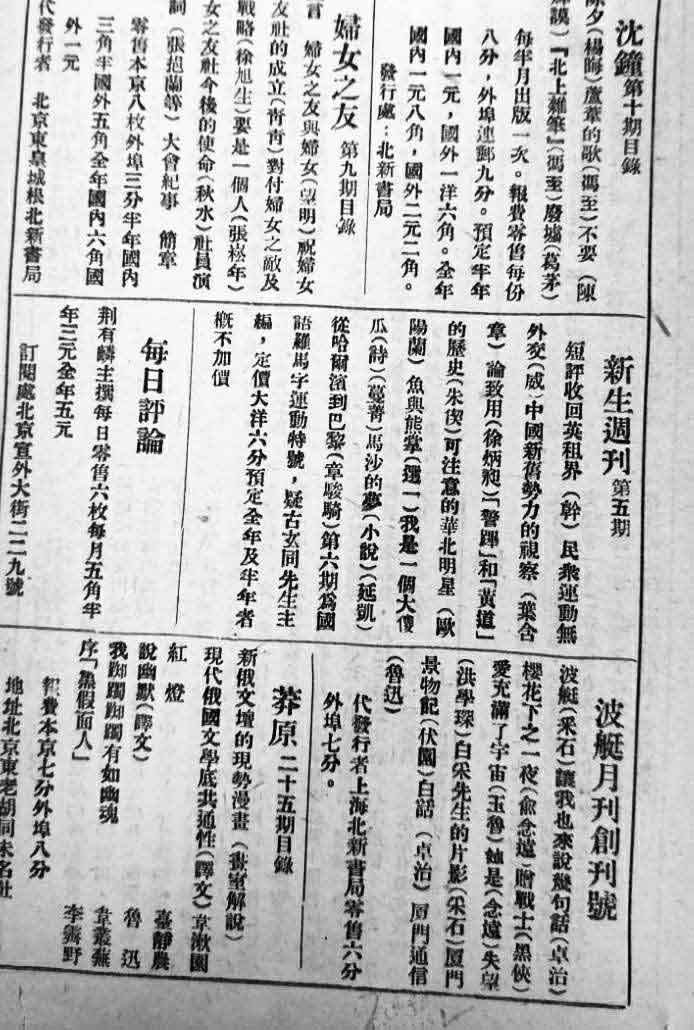 沈鐘第十期目錄
除夕(楊晦)蘆葦的歌(馮至)不要(陳
『北上雜筆』(馮至)廢墟(葛茅)
每半月出版一次。報費零售每份
八分,外埠連郵九分。預定半年
國內一元,國外一洋六角。全年
國內一元八角,國外二元二角。
發行處:北新書局
婦女之友 第九期目錄
言 婦女之友與婦女(望明)祝婦女
友社的成立(青青)對付婦女之敵及
戰略(徐旭生)要是一個人(張崧年)
女之友社今後的使命(秋水)社員演
詞(張挹蘭等)大會紀事 簡章
零售本京八枚外埠三分半年國內
三角半國外五角全年國內六角國
外一元
代發行者 北京東皇城根北新書局
新生週刊 第五期
短評收回英租界(幹)民衆運動無
外交(威)中國新舊勢力的視察(葉含
章)論致用(徐炳昶)「警蹕」和「黃道」
的歷史(朱偰)可注意的華北明星(歐
陽蘭)魚與熊掌(選一)我是一個大傻
瓜(詩)(蔓菁)馬沙的夢(小說)(延凱)
從哈爾濱到巴黎(章駿騎)第六期爲國
語羅馬字運動特號,疑古玄同先生主
編,定價大洋六分預定全年及半年者
概不加價
每日評論
荆有麟主撰每日零售六枚每月五角半
年三元全年五元
訂閱處北京宣外大街二二九號
波艇月刊創刊號
波艇(采石)讓我也來說幾句話(卓治)
櫻花下之一夜(俞念遠)贈戰士(黑俠)
愛充滿了宇宙(玉魯)她是(念遠)失望
(洪學琛)白采先生的片影(采石)厦門
景物記(伏園)白話(卓治)厦門通信
(魯迅)
代發行者上海北新書局零售六分
外埠七分。
莽原 二十五期目錄
新俄文壇的現勢漫畫(畫室解說)
現代俄國文學底共通性(譯文)韋漱園
紅燈 臺靜農
說幽默(譯文) 魯迅
我踟躅踟躅有如幽魂 韋叢蕪
序「黑假面人」 李霽野
報費本京七分外埠八分
地址北京東老胡同未名社